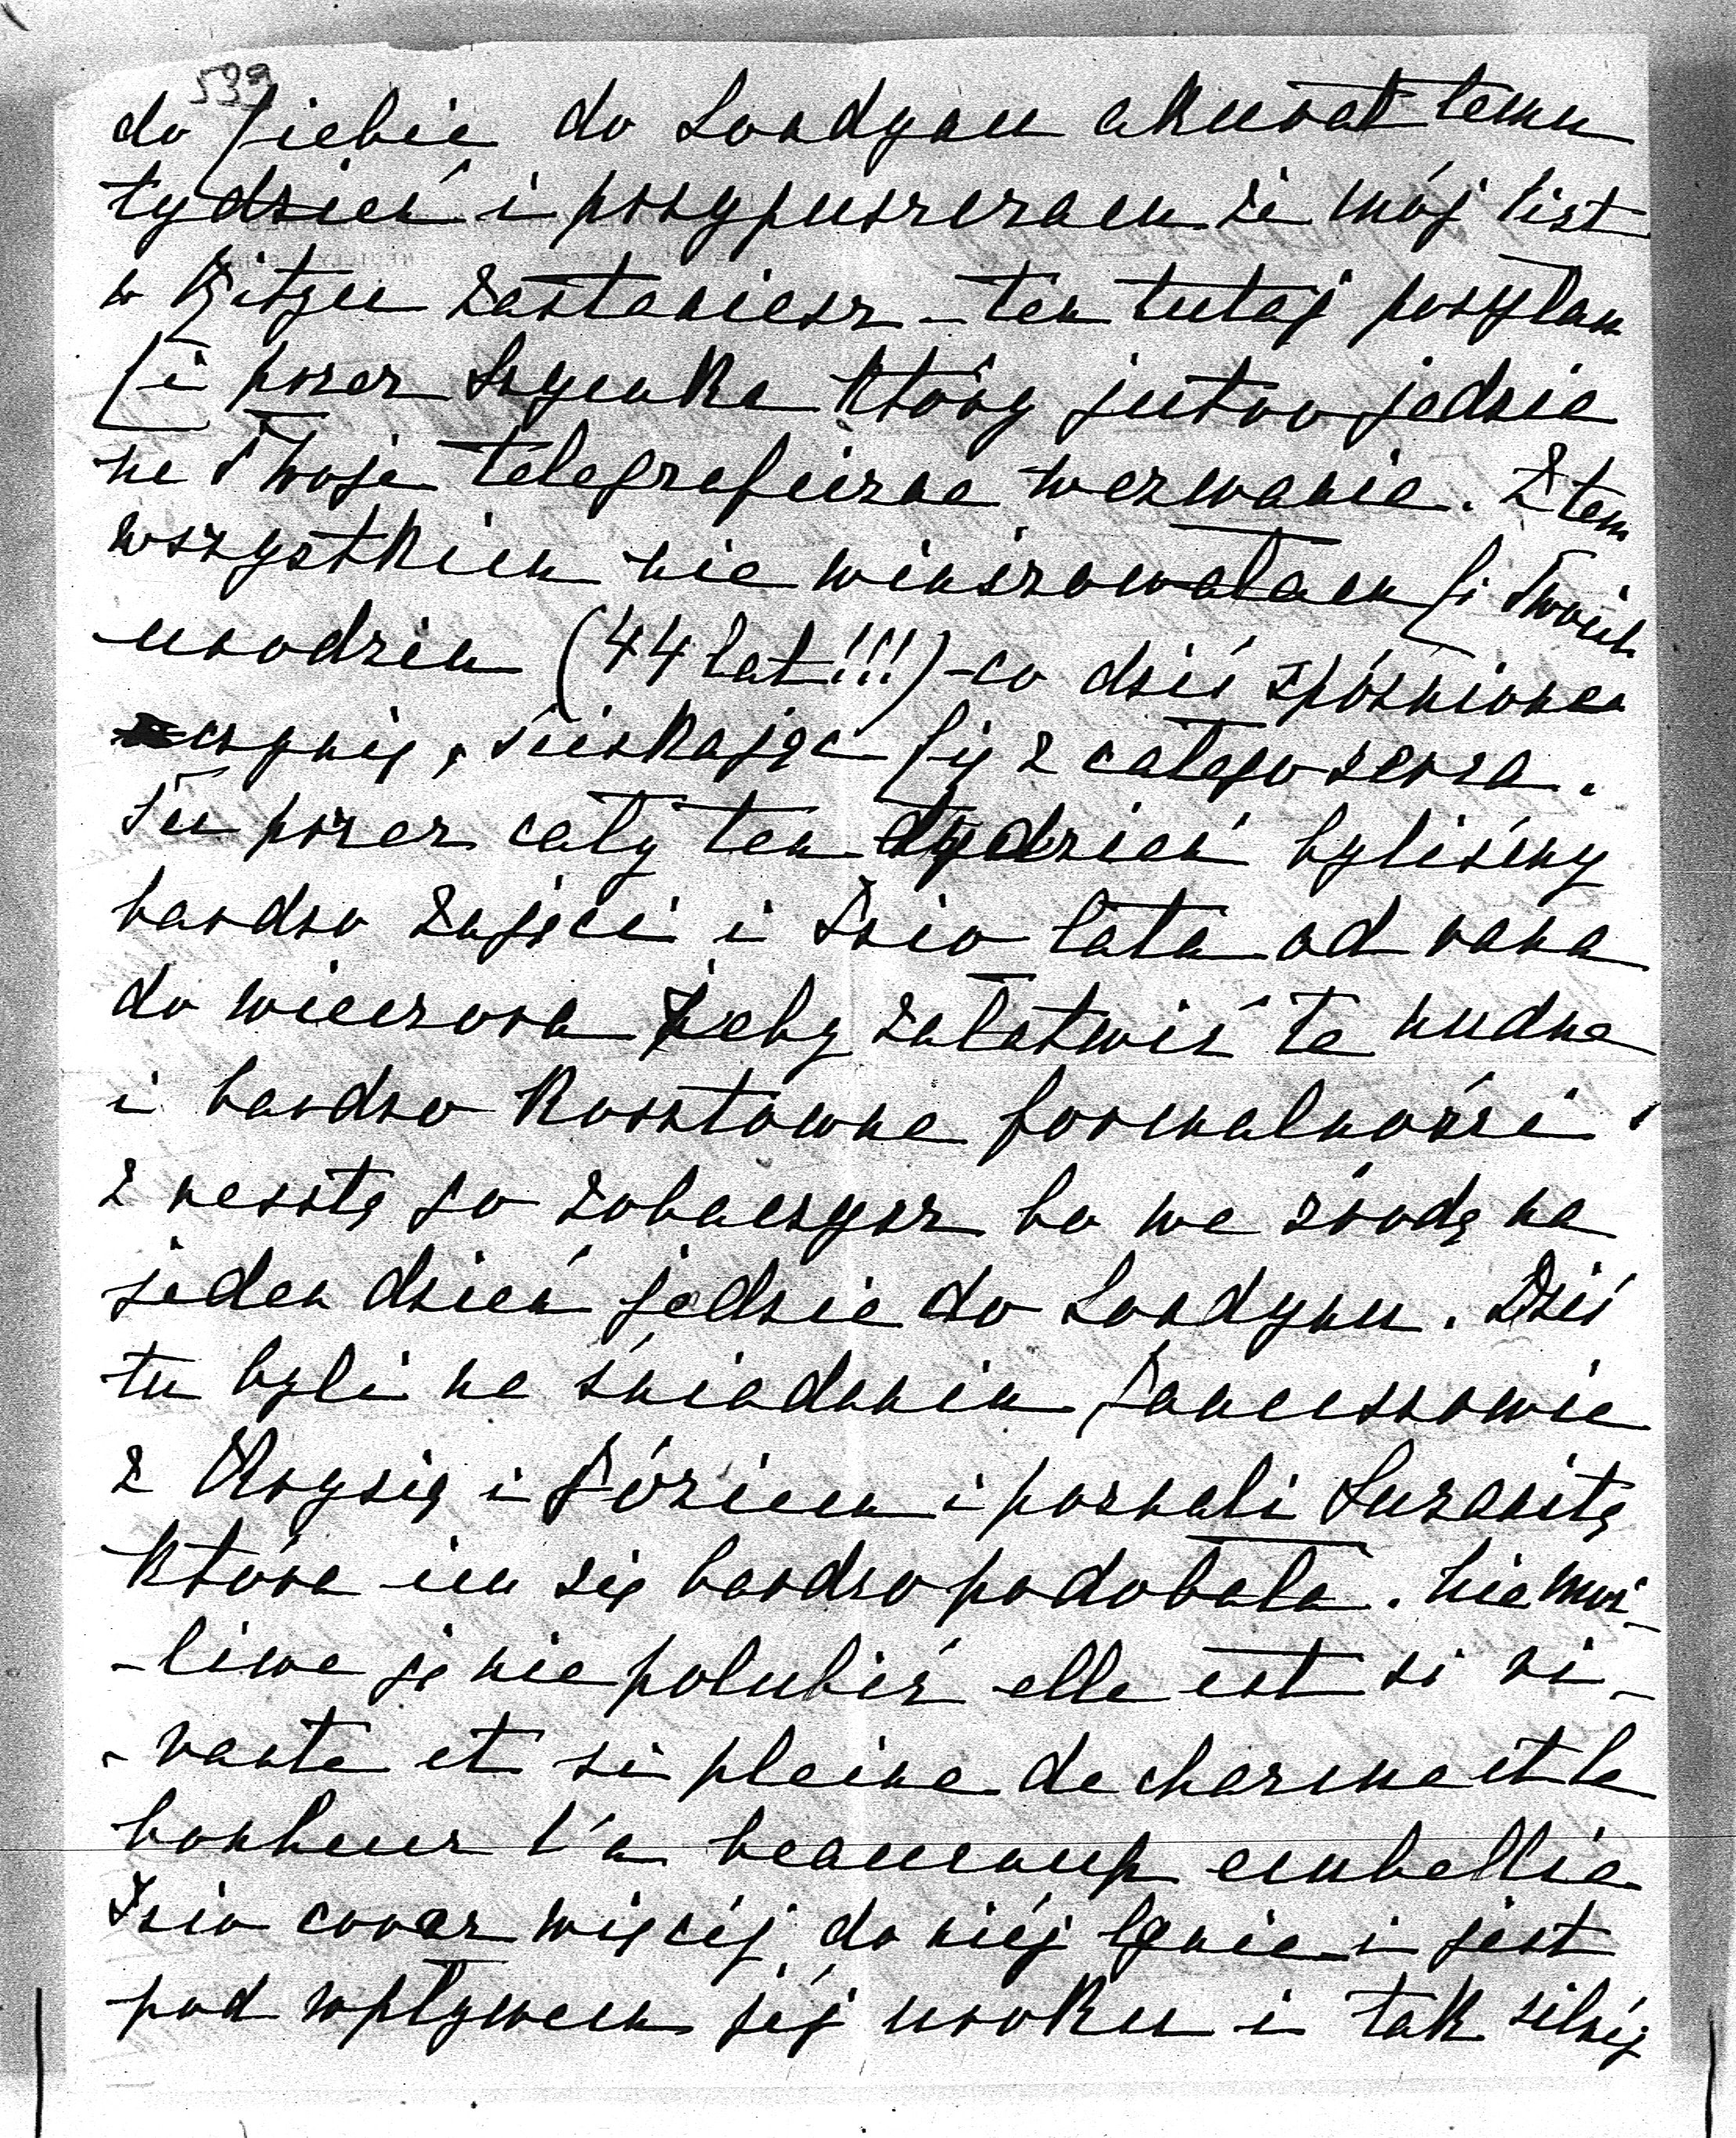 539
do Ciebie do Londynu akurat temu
tydzień i przypuszczam że mój list
w Ritzu zastaniesz – ten tutaj posyłam
Ci przez Szymka który jutro jedzie
na Twoje telegraficzne wezwanie. Z tem
wszystkiem nie winszowałam Ci Twoich
urodzin (44 lat!!!) – co dziś spóźniona
czynię, ściskając Cię z całego serca.
Tu przez cały ten tydzień byliśmy
bardzo zajęci i Dzio lata od rana
do wieczora żeby załatwić te nudne
i bardzo kosztowne formalności
zresztą go zobaczysz bo we środę na
jeden dzień jedzie do Londynu. Dziś
tu byli na śniadaniu
z Krysią i Józiem i poznali Suzanitę
która im się bardzo podobała. Niemoż-
-liwe ją nie polubić elle est si vi-
-vante et si pleine de charme et le
bonheur l'a beaucoup embellie
Dzio coraz więcéj do niéj lgnie i jest
pod wpływem jéj uroku i tak silnéj